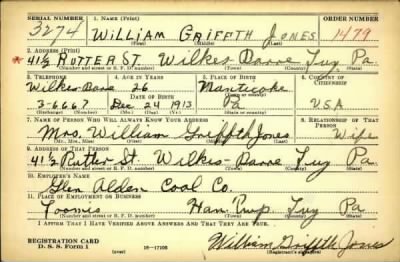 SERIAL NUMBER 1. NAME (Print) ORDER NUMBER
3274 WILLIAM GRIFFTH JONES 1479
(First) (Middle) (Last)
2. ADDRESS (Print)
* 41½ RUTTER ST. Wilkes Barre Luz Pa.
(Number and street or R. F. D. number) (Town) (County) (State)
3. TELEPHONE 4. AGE IN YEARS 5. PLACE OF BIRTH 6. COUNTRY OF CITIZENSHIP
Wilkes-Barre 26 Nanticoke
DATE OF BIRTH
3-6667 Dec 24 1913 Pa U.S.A
(Exchange) (Number) (Mo.) (Day) (Yr.) (State or country)
7. NAME OF PERSON WHO WILL ALWAYS KNOW YOUR ADDRESS 8. RELATIONSHIP OF THAT PERSON
Mrs. William Griffth Jones Wife
(Mr., Mrs., Miss) (First) (Middle) (Last)
9. ADDRESS OF THAT PERSON
41½ Rutter St. Wilkes-Barre Luz Pa.
(Number and street or R. F. D. number) (Town) (County) (State)
10. EMPLOYER'S NAME
Glen Alden Coal Co.
11. PLACE OF EMPLOYMENT OR BUSINESS
Loomis Han Twp. Luz Pa
(Number and street or R. F. D. number) (Town) (County) (State)
I AFFIRM THAT I HAVE VERIFIED ABOVE ANSWERS AND THAT THEY ARE TRUE.
REGISTRATION CARD
D. S. S. Form 1 (over) 16-17105 William Griffth Jones
(Registrant's signature)